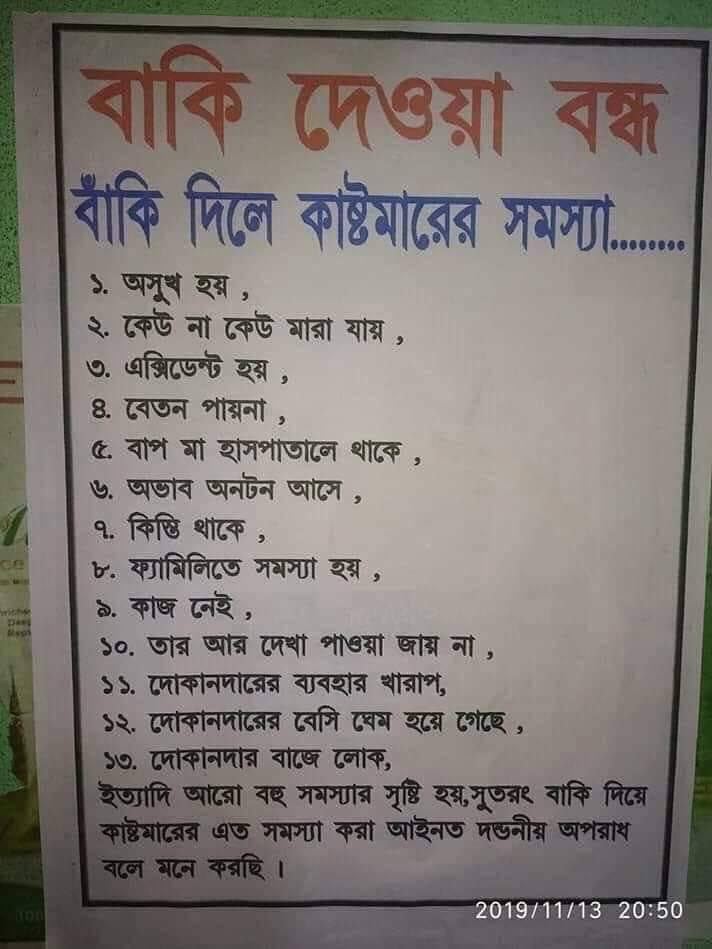 বাকি দেওয়া বন্ধ
বাঁকি দিলে কাষ্টমারের সমস্যা........
১. অসুখ হয় ,
২. কেউ না কেউ মারা যায় ,
৩. এক্সিডেন্ট হয় ,
৪. বেতন পায়না ,
৫. বাপ মা হাসপাতালে থাকে ,
৬. অভাব অনটন আসে ,
৭. কিস্তি থাকে ,
৮. ফ্যামিলিতে সমস্যা হয় ,
৯. কাজ নেই ,
১০. তার আর দেখা পাওয়া জায় না ,
১১. দোকানদারের ব্যবহার খারাপ,
১২. দোকানদারের বেসি ঘেম হয়ে গেছে ,
১৩. দোকানদার বাজে লোক,
ইত্যাদি আরো বহু সমস্যার সৃষ্টি হয়,সুতরং বাকি দিয়ে
কাষ্টমারের এত সমস্যা করা আইনত দন্ডনীয় অপরাধ
বলে মনে করছি ।
2019/11/13 20:50